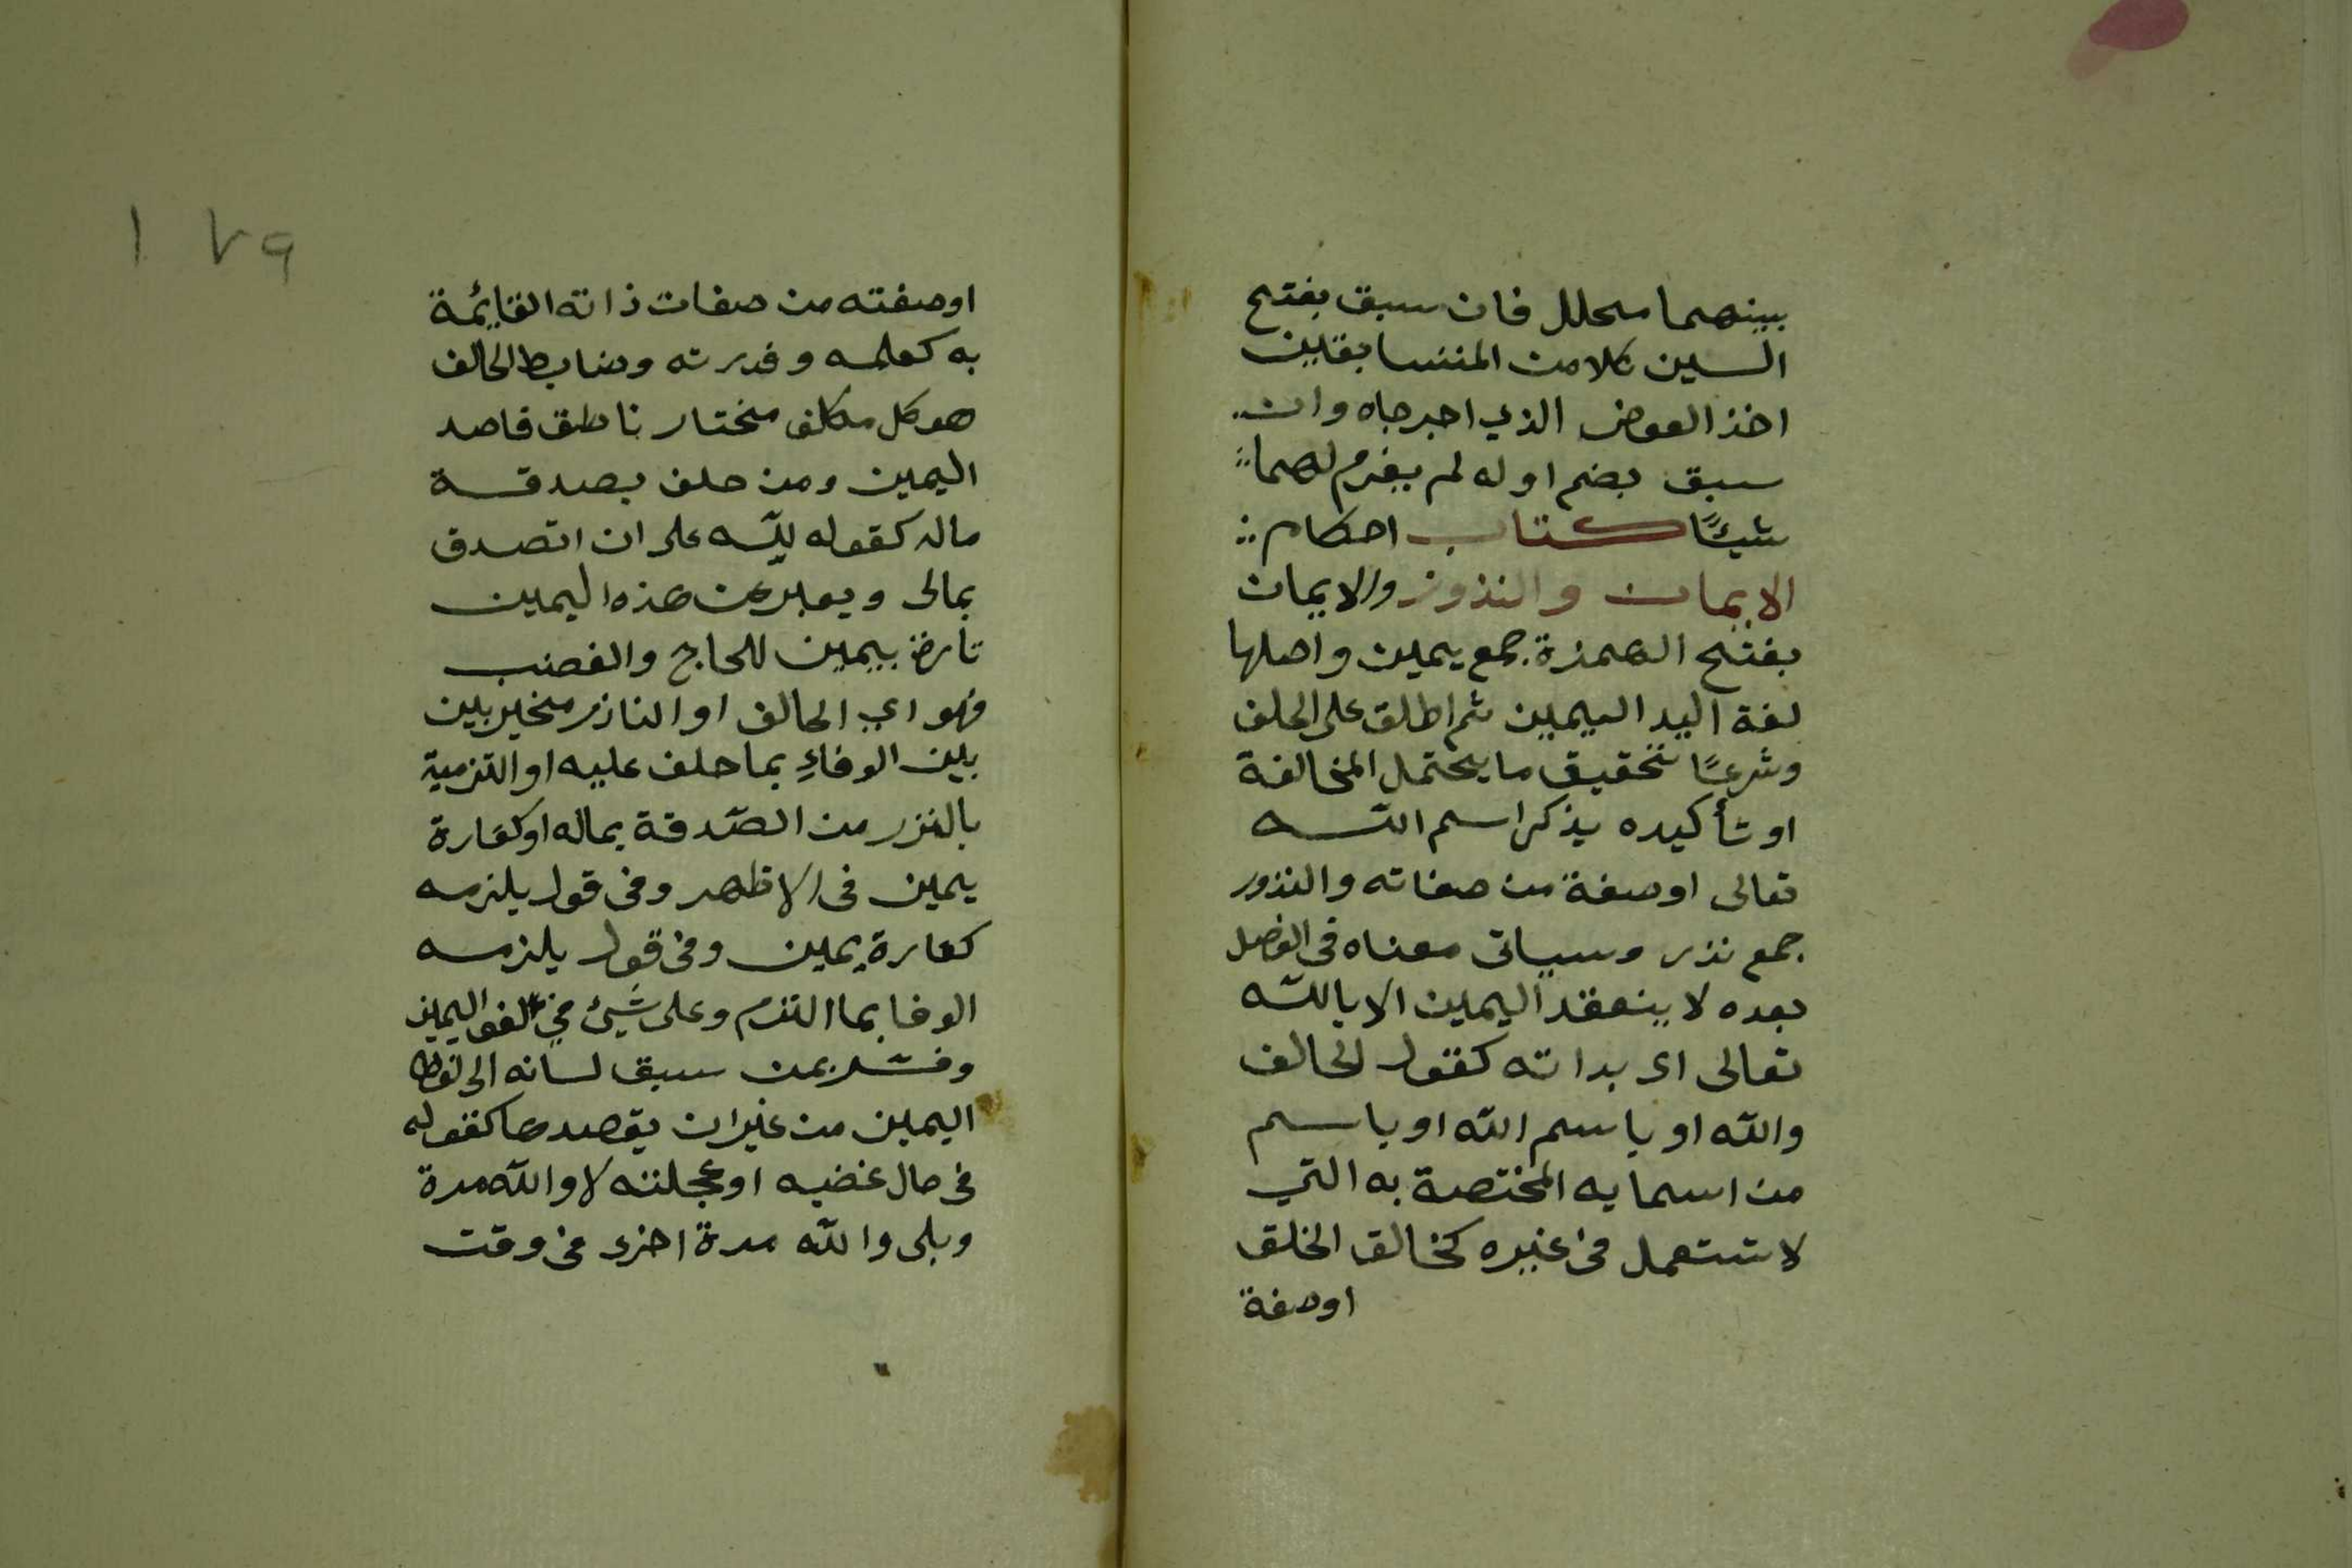 بينهما محلل فان سبق بفتح
السين كلا من المتسابقين
اخذ العوض الذي اخرجاه وان
سبق بضم اوله لم يغرم لهما
شيئًا كتاب احكام
الايمان والنذور والايمان
بفتح الهمزة جمع يمين واصلها
لغة اليد اليمين ثم اطلق على الحلف
وشرعًا تحقيق ما يحتمل المخالفة
او تأكيده بذكر اسم الله
تعالى او صفة من صفاته والنذور
جمع نذر وسياتى معناه في الفصل
بعده لا ينعقد اليمين الا بالله
تعالى اى بداته كقول الحالف
والله او باسم الله او باسم
من اسمايه المختصة به التي
لا تستعمل في غيره كخالق الخلق
او صفة
١٧٩
او صفته من صفات ذاته القائمة
به كعلمه وقدرته وضابط الحالف
هو كل مكلف مختار ناطق قاصد
اليمين ومن حلف بصدقة
ماله كقوله لله على ان اتصدق
بمالى ويعبر عن هذه اليمين
تارة بيمين اللحاج والغضب
فهو اي الحالف او الناذر مخير بين
بين الوفاءِ بما حلف عليه او التزميه
بالنزر من الصّدقة بماله او كفارة
يمين فى الاظهر وفى قول يلزمه
كفارة يمين وفى قول يلزمه
الوفا بما التزم وعلى شَيئ في لغو اليمين
وفسّر بمن سبق لسانه الى لفظ
اليمين من غير ان يقصدها كقوله
فى حال غضبه او عجلته لا والله مدة
وبلى والله مدة اخرى فى وقت